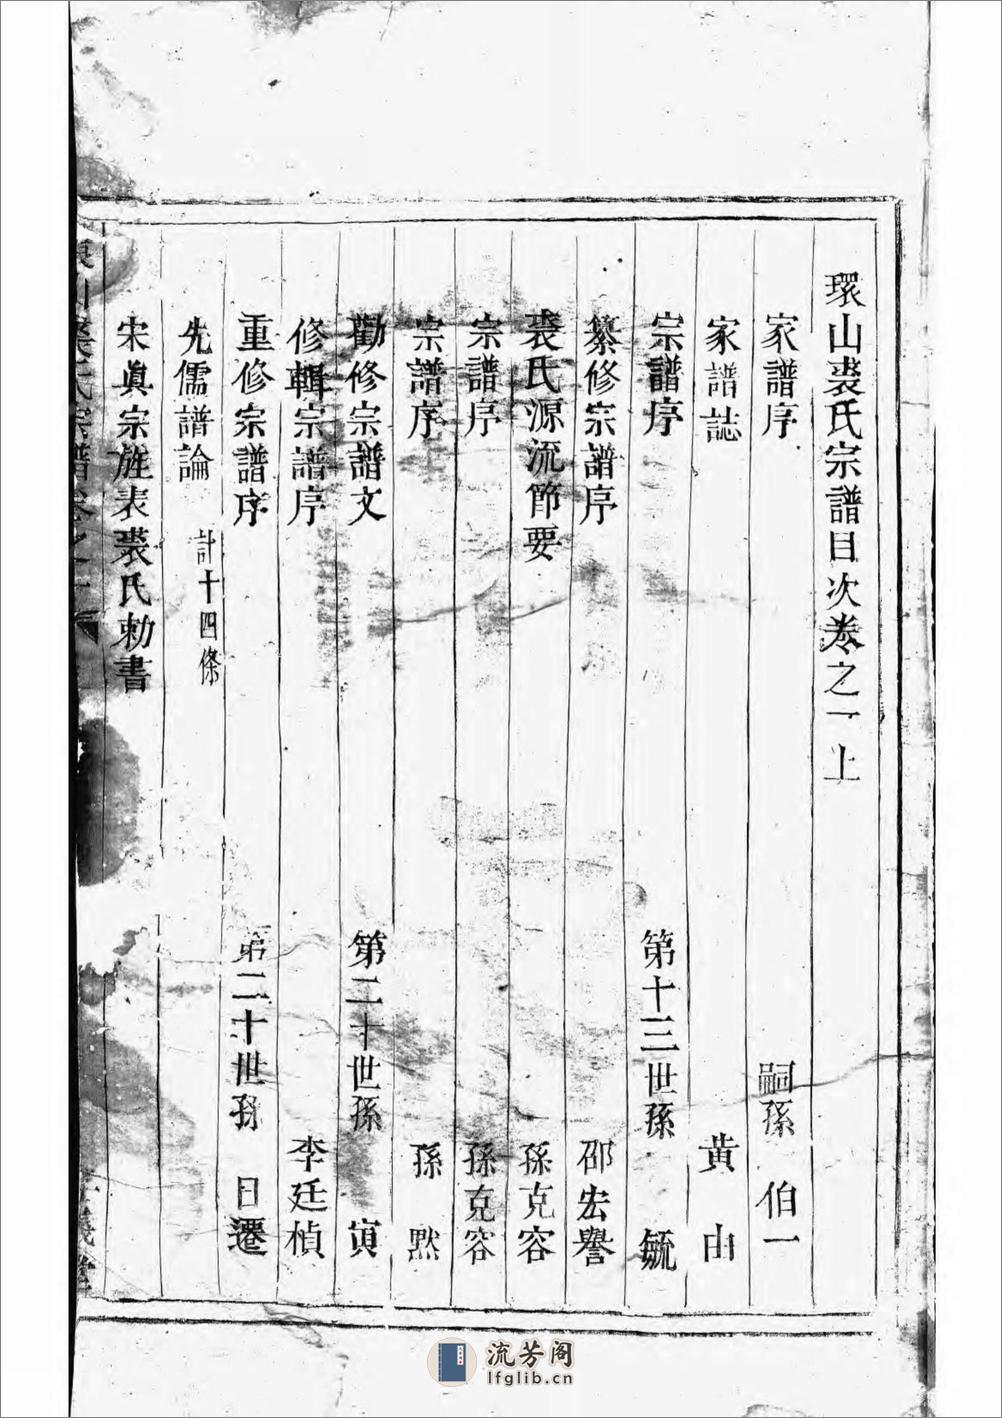 環山裘氏宗譜目次卷之一上
家譜序 嗣孫 伯一
家譜誌 黄由
宗譜序 第十三世孫 毓
纂修宗譜序 邵宏譽
裘氏源流節要 孫克容
宗譜序 孫克容
宗譜序 孫默
勸修宗譜文 第二十世孫 寅
修輯宗譜序 李廷楨
重修宗譜序 第二十世孫 日遷
先儒譜論 計十四條
宋眞宗旌表裘氏勅書
山裘氏宗譜卷之一 義堂
流芳阁
lfglib.cn